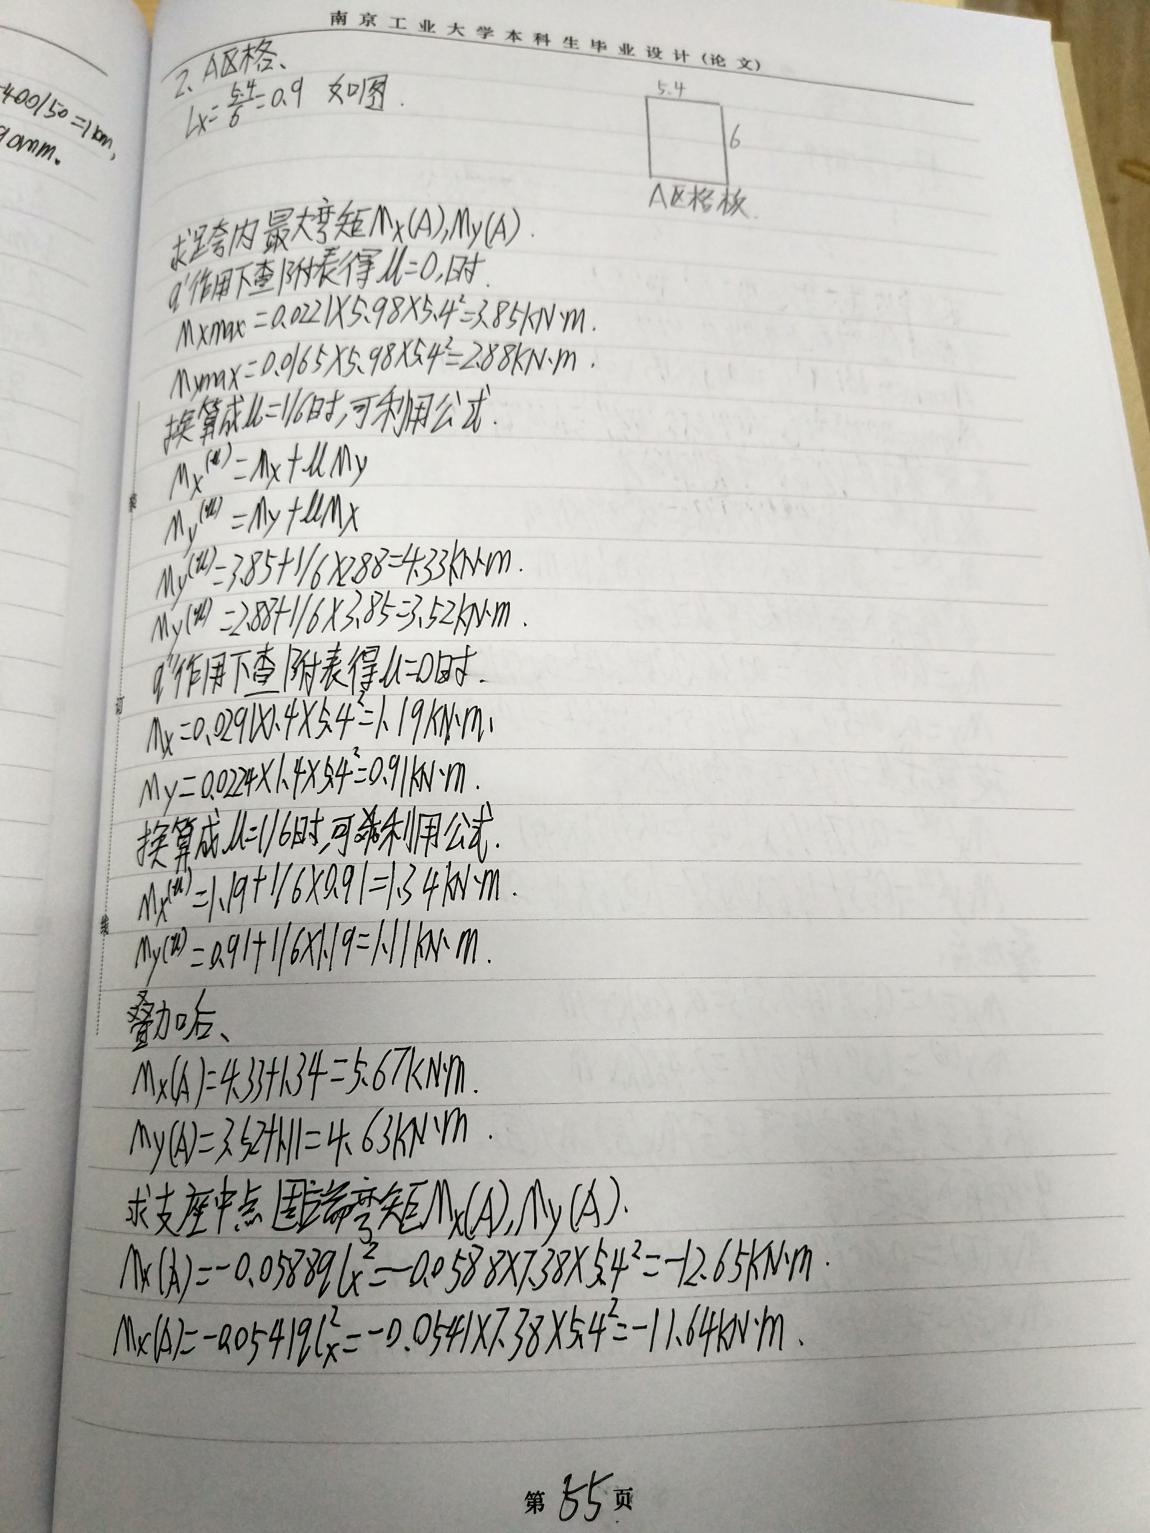 南京工业大学本科生毕业设计(论文)
400/50=1km,
90mm.
2、A区格、
Lx=5.4/6=0.9 如图.
5.4
6
A区格板.
求跨内最大弯矩Mx(A),My(A).
q'作用下查附表得μ=0,时.
Mxmax=0.0221×5.98×5.4²=3.85kN·m.
Mymax=0.0165×5.98×5.4²=2.88kN·m.
换算成μ=1/6时,可利用公式.
Mx⁽ᵘ⁾=Mx+μMy
My⁽ᵘ⁾=My+μMx
My⁽ᵘ⁾=3.85+1/6×2.88=4.33kN·m.
My⁽ᵘ⁾=2.88+1/6×3.85=3.52kN·m.
q''作用下查附表得μ=0时.
Mx=0.0291×1.4×5.4²=1.19kN·m,
My=0.0224×1.4×5.4²=0.91kN·m.
换算成μ=1/6时,可利用公式.
Mx⁽ᵘ⁾=1.19+1/6×0.91=1.34kN·m.
My⁽ᵘ⁾=0.91+1/6×1.19=1.11kN·m.
叠加后、
Mx(A)=4.33+1.34=5.67kN·m.
My(A)=3.52+1.11=4.63kN·m.
求支座中点固端弯矩Mx(A),My(A).
Mx(A)=-0.0588qlx²=-0.0588×7.38×5.4²=-12.65kN·m.
Mx(A)=-0.0541qlx²=-0.0541×7.38×5.4²=-11.64kN·m.
装
订
线
第55页